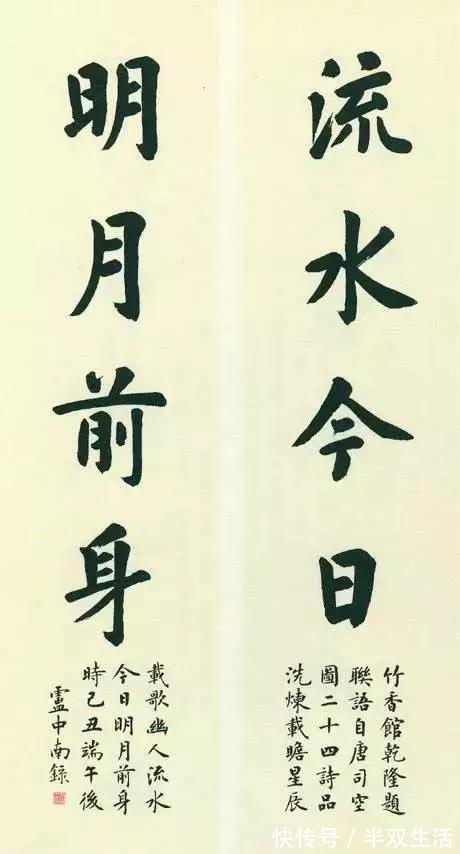 流水今日
竹香館乾隆題
聯語自唐司空
圖二十四詩品
洗煉載瞻星辰
明月前身
載歌幽人流水
今日明月前身
時己丑端午後
盧中南錄
快传号／半双生活